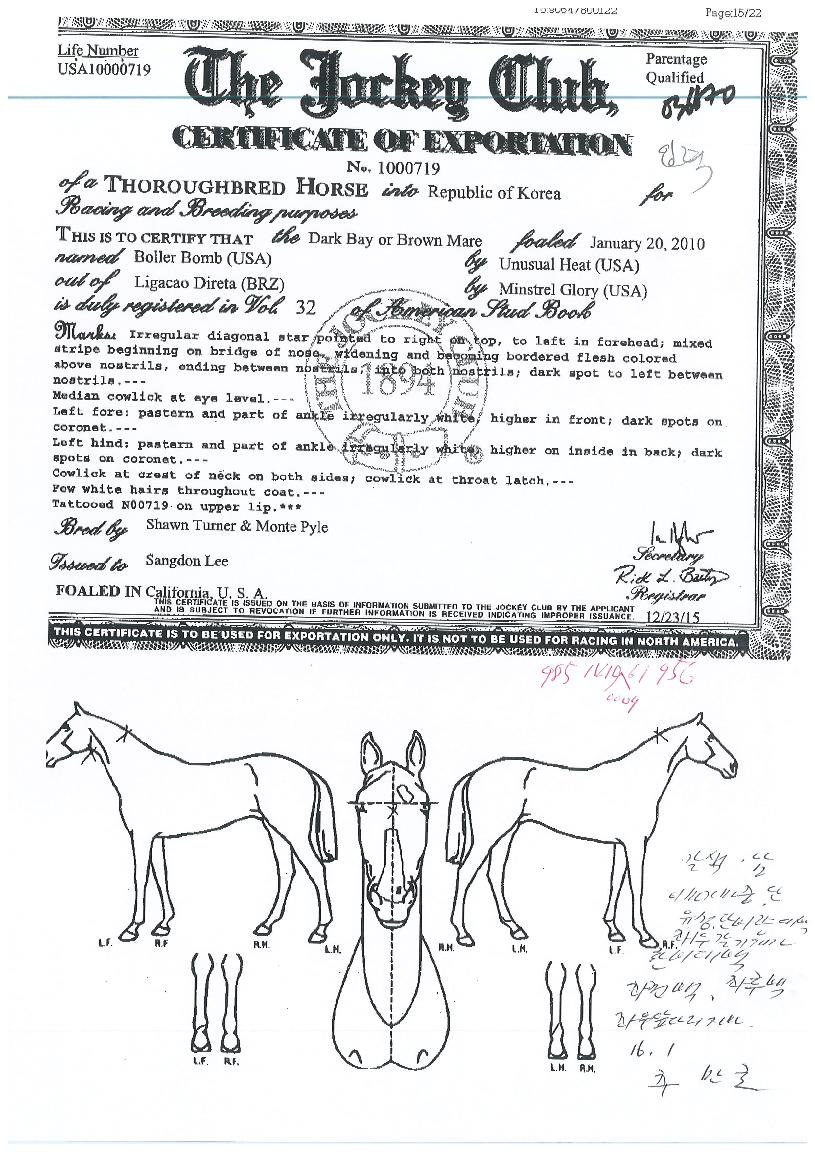 Page:15/22
Life Number
USA10000719
The Jockey Club
Parentage
Qualified
CERTIFICATE OF EXPORTATION
No. 1000719
of a THOROUGHBRED HORSE into Republic of Korea for
Racing and Breeding purposes
THIS IS TO CERTIFY THAT the Dark Bay or Brown Mare foaled January 20, 2010
named Boiler Bomb (USA) by Unusual Heat (USA)
out of Ligacao Direta (BRZ) by Minstrel Glory (USA)
is duly registered in Vol. 32 of American Stud Book
Marks: Irregular diagonal star pointed to right on top, to left in forehead; mixed
stripe beginning on bridge of nose, widening and becoming bordered flesh colored
above nostrils, ending between nostrils, into both nostrils; dark spot to left between
nostrils.---
Median cowlick at eye level.---
Left fore: pastern and part of ankle irregularly white, higher in front; dark spots on
coronet.---
Left hind: pastern and part of ankle irregularly white, higher on inside in back; dark
spots on coronet.---
Cowlick at crest of neck on both sides; cowlick at throat latch.---
Few white hairs throughout coat.---
Tattooed N00719 on upper lip.***
THE JOCKEY CLUB
1894
Bred by Shawn Turner & Monte Pyle
Issued to Sangdon Lee
Secretary
Registrar
FOALED IN California, U. S. A.
THIS CERTIFICATE IS ISSUED ON THE BASIS OF INFORMATION SUBMITTED TO THE JOCKEY CLUB BY THE APPLICANT
AND IS SUBJECT TO REVOCATION IF FURTHER INFORMATION IS RECEIVED INDICATING IMPROPER ISSUANCE. 12/23/15
THIS CERTIFICATE IS TO BE USED FOR EXPORTATION ONLY. IT IS NOT TO BE USED FOR RACING IN NORTH AMERICA.
L.F. R.F. R.H. L.H. R.H. L.H. L.F. R.F.
L.F. R.F. L.H. R.H.
16. 1